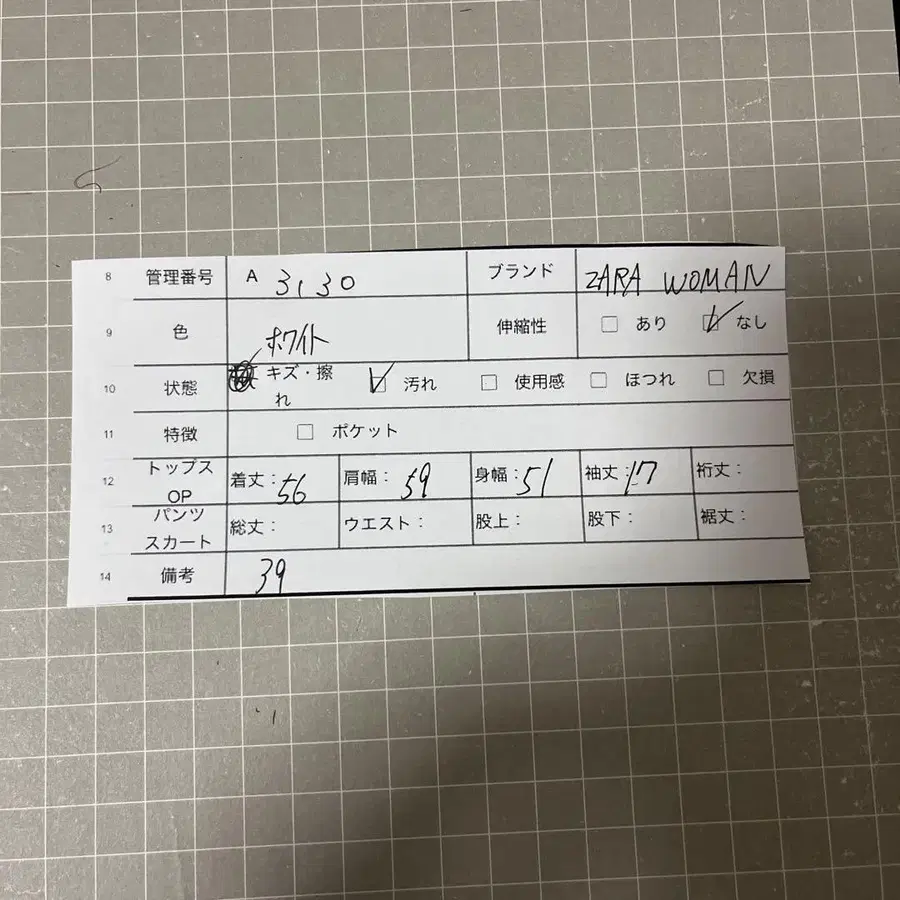 8 管理番号 A 3130 ブランド ZARA WOMAN
9 色 ホワイト 伸縮性 あり なし
10 状態 キズ・擦れ 汚れ 使用感 ほつれ 欠損
11 特徴 ポケット
12 トップス OP 着丈：56 肩幅：59 身幅：51 袖丈：17 裄丈：
13 パンツ スカート 総丈： ウエスト： 股上： 股下： 裾丈：
14 備考 39